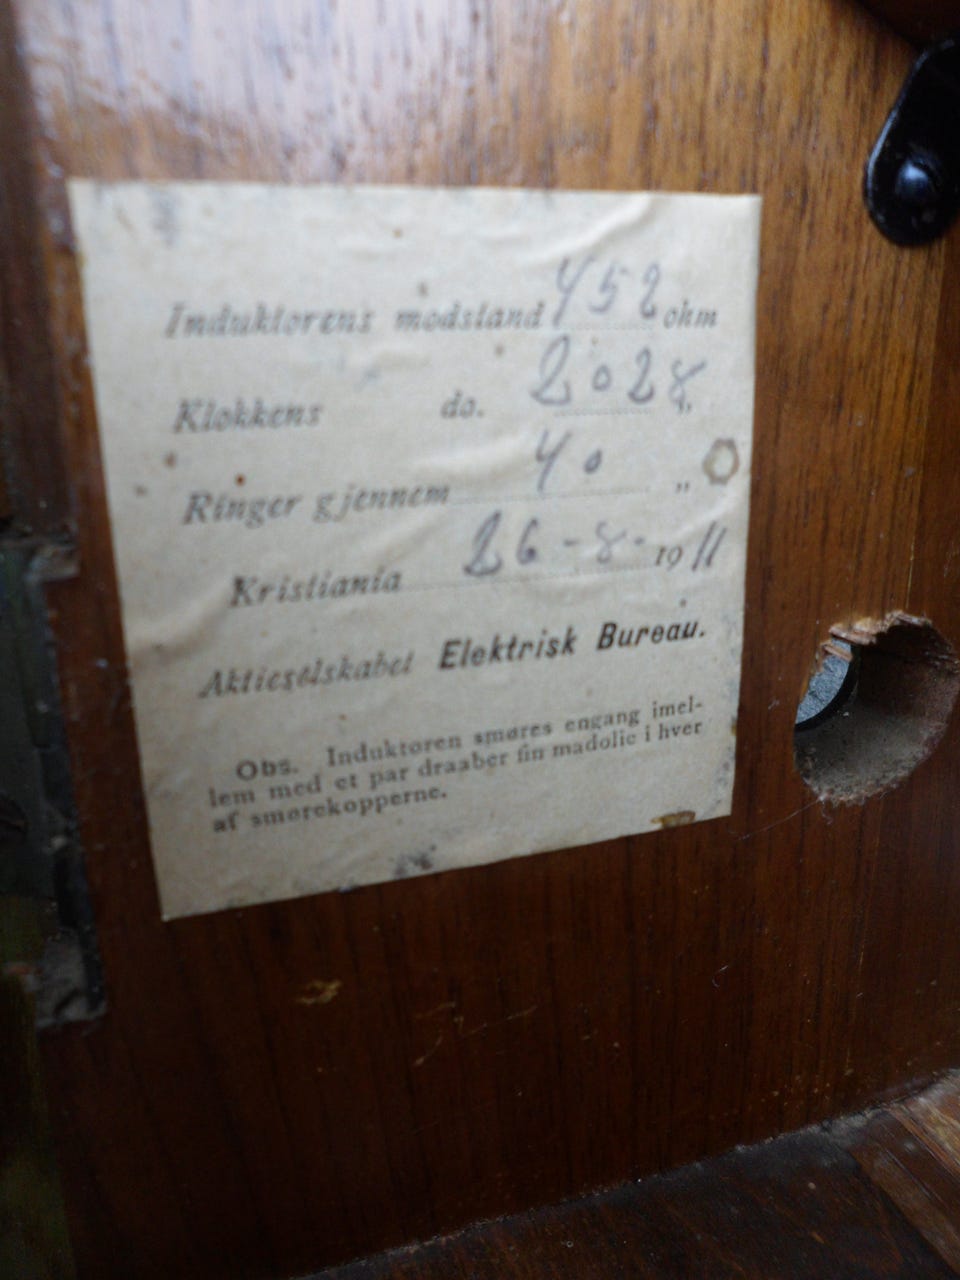 Induktorens modstand 452 ohm
Klokkens do. 2028 „
Ringer gjennem 40 „
Kristiania 26-8-1911
Aktieselskabet Elektrisk Bureau.
Obs. Induktoren smøres engang imel-
lem med et par draaber fin madolie i hver
af smørekopperne.